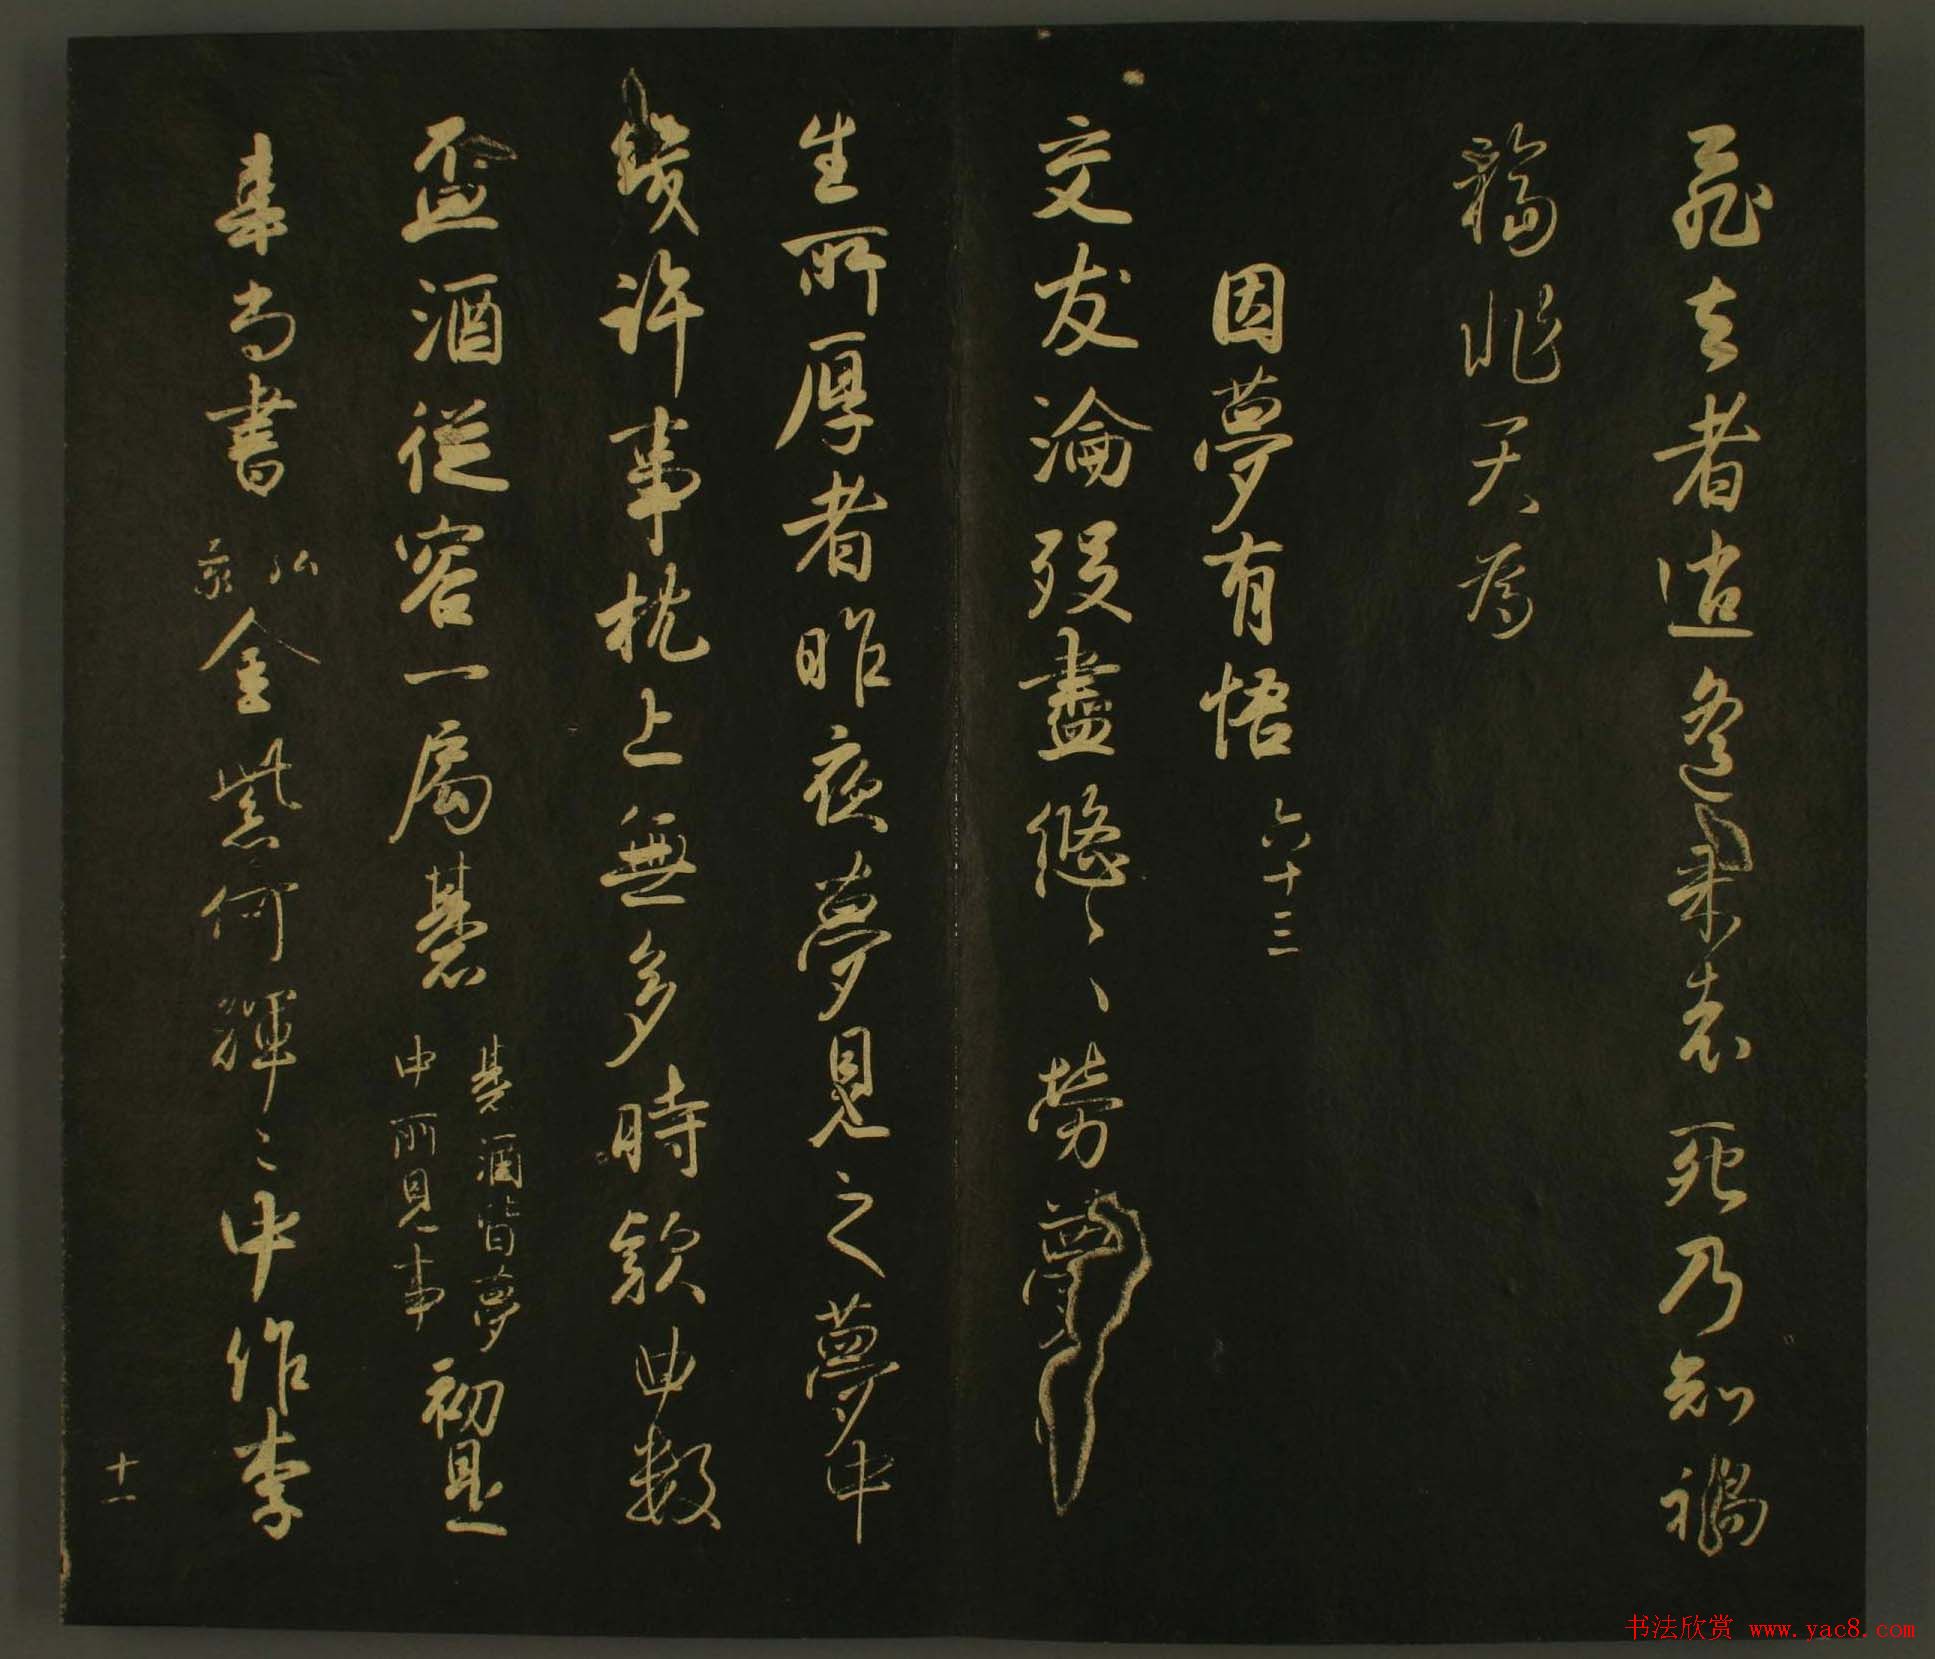 飛去者逍遙来者死乃知禍
福非天為
因夢有悟 六十三
交友淪歿盡悠〻勞夢
生所厚者昨夜夢見之夢中
幾許事枕上無多時款曲數
盃酒從容一局碁 碁酒皆夢中所見事 初見
韋尚書 弘景 金紫何輝〻中作李
十一
书法欣赏 www.yac8.com